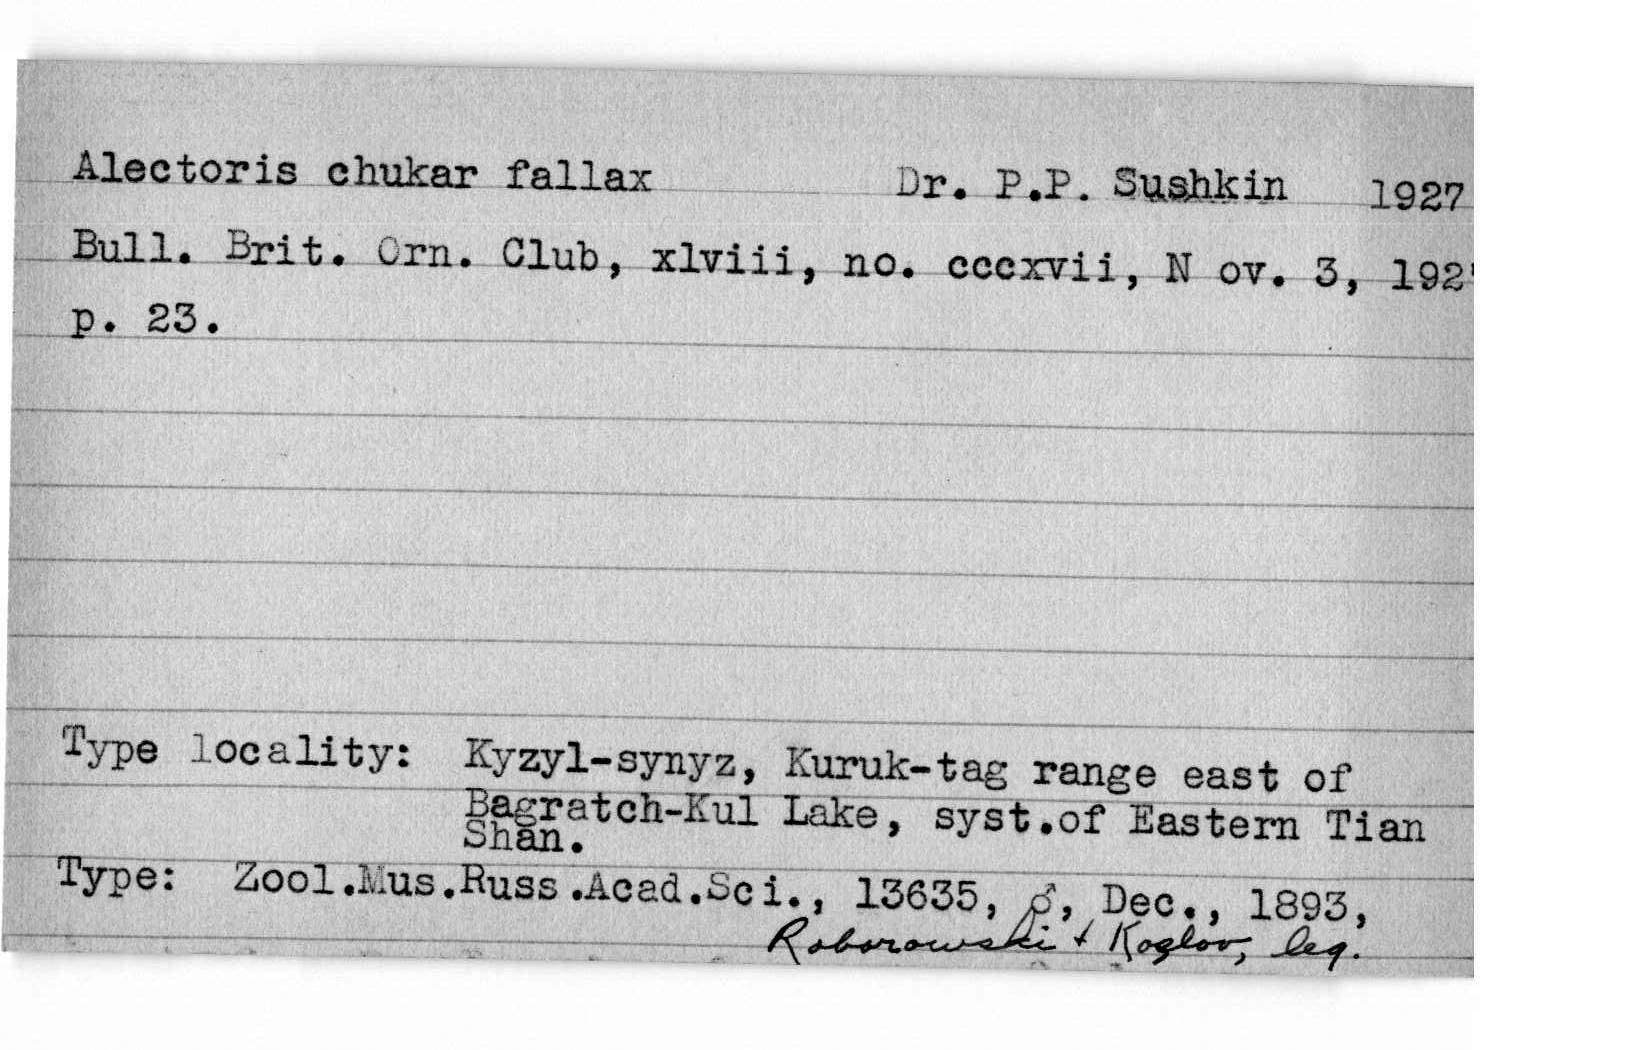 Alectoris chukar fallax Dr. P.P. Sushkin 1927
Bull. Brit. Orn. Club, xlviii, no. cccxvii, N ov. 3, 192
p. 23.
Type locality: Kyzyl-synyz, Kuruk-tag range east of
Bagratch-Kul Lake, syst.of Eastern Tian
Shan.
Type: Zool.Mus.Russ.Acad.Sci., 13635, ♂, Dec., 1893,
Roborowski + Kozlov, leg.